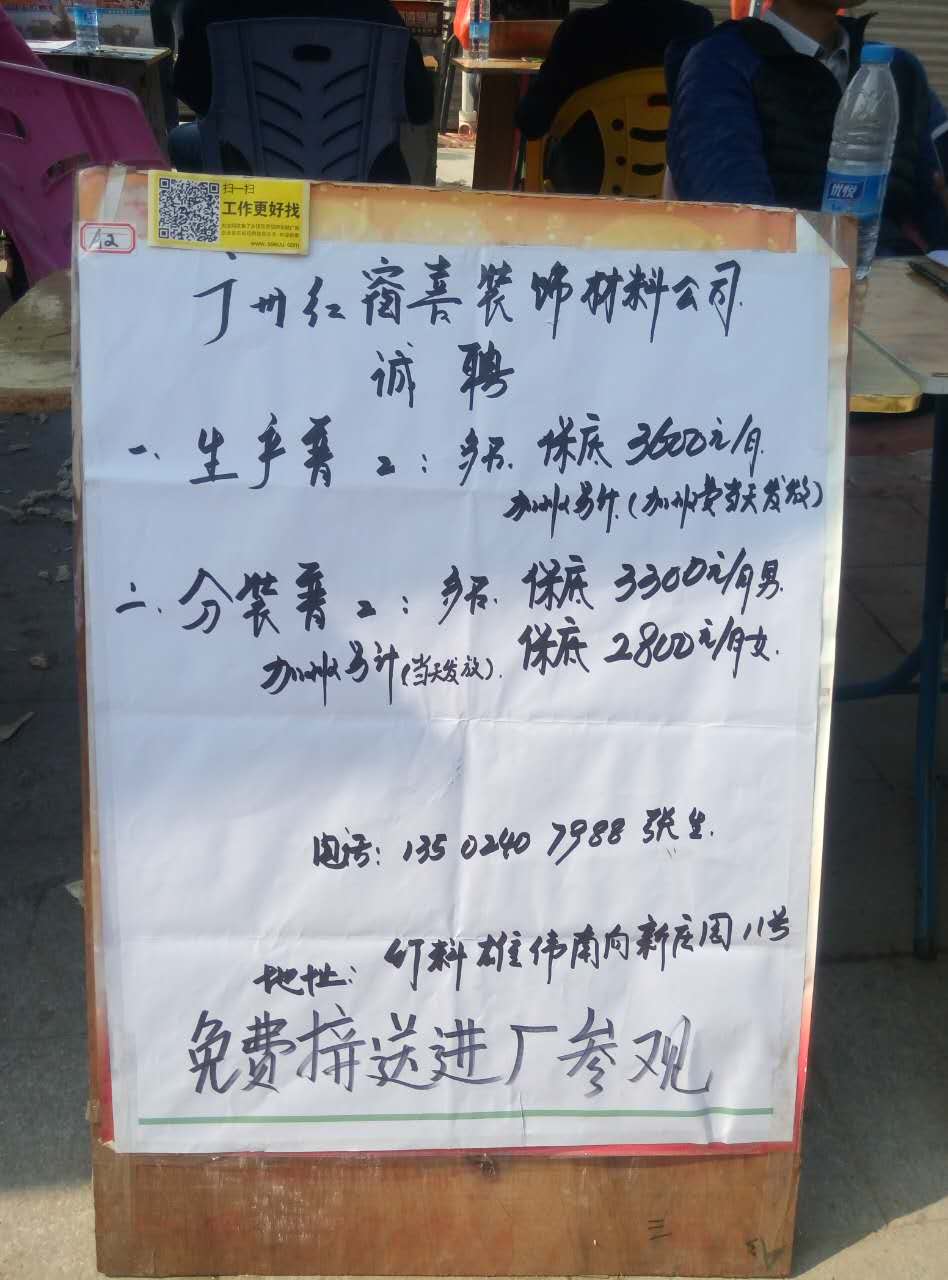 扫一扫
工作更好找
A2
广州红窗喜装饰材料公司
诚聘
一、生产普工：多名. 保底3600元/月.
加班另计.(加班费当天发放)
二、分装普工：多名. 保底3300元/月男.
保底2800元/月女.
加班另计(当天发放).
电话：135 0240 7988 张生.
地址：竹料雄伟南向新庄园11号
免费接送进厂参观
优悦
三